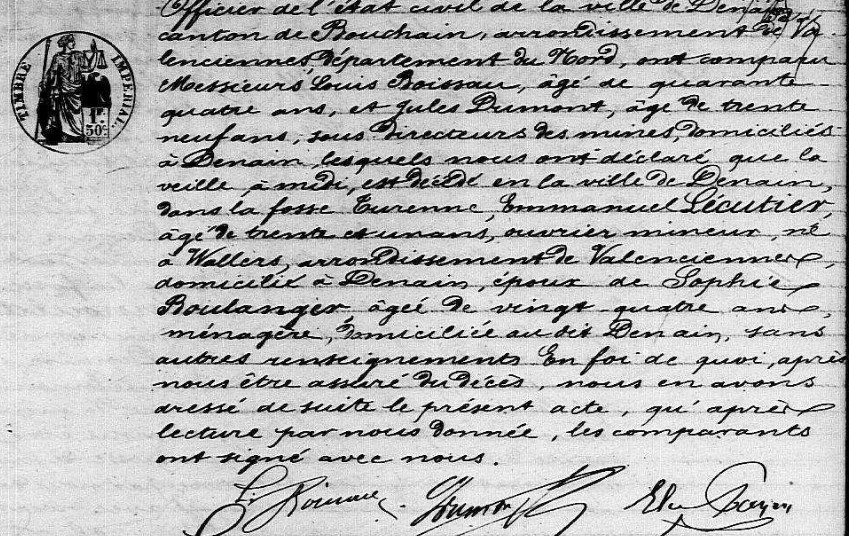 Officier de l'état civil de la ville de Denain
canton de Bouchain, arrondissement de Va-
lenciennes département du Nord, ont comparu
Messieurs Louis Boissau, âgé de quarante
quatre ans, et Jules Dumont, âgé de trente
neuf ans, sous directeurs des mines, domiciliés
à Denain, lesquels nous ont déclaré que la
veille, à midi, est décédé en la ville de Denain,
dans la fosse Turenne, Emmanuel Lécutier,
âgé de trente et un ans, ouvrier mineur, né
à Wallers, arrondissement de Valenciennes,
domicilié à Denain, époux de Sophie
Boulanger, âgée de vingt quatre ans,
ménagère, domiciliée au dit Denain, sans
autres renseignements En foi de quoi, après
nous être assuré du décès, nous en avons
dressé de suite le présent acte, qu'après
lecture par nous donnée, les comparants
ont signé avec nous.
TIMBRE IMPERIAL.
1F.
50c
Dumont